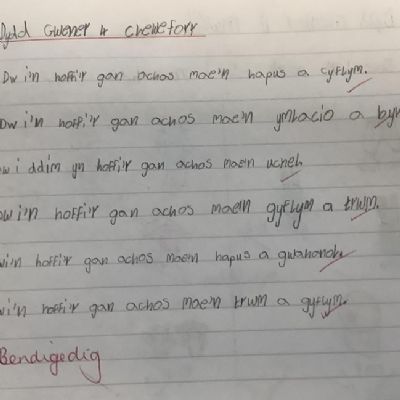 Dydd Gwener 4 Chewefory
Dw i'n hoffi'r gan achos mae'n hapus a cyflym.
Dw i'n hoffi'r gan achos mae'n ymlacio a
w i ddim yn hoffi'r gan achos mae'n uchel.
ow i'n hoffi'r gan achos mae'n gyflym a trwm.
wi'n hoffi'r gan achos mae'n hapus a gwahanol.
wi'n hoffi'r gan achos mae'n trwm a gyflym.
Bendigedig